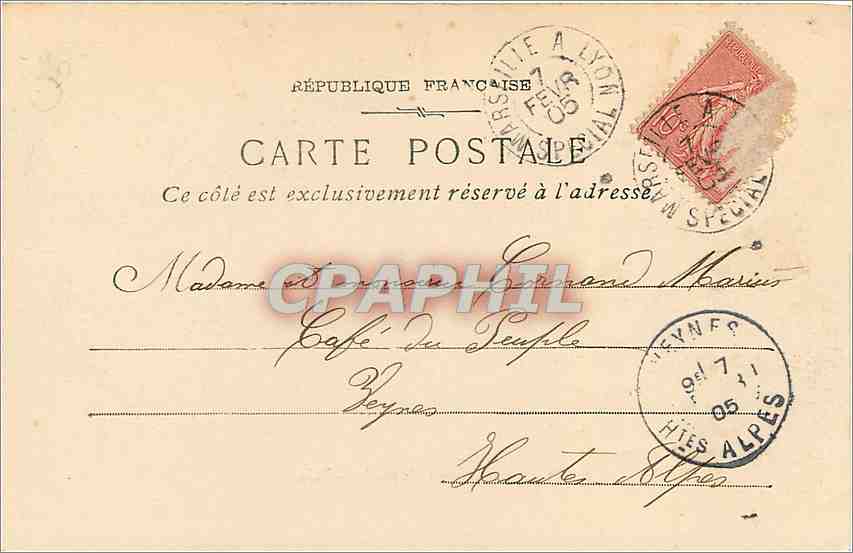 MARSEILLE A LYON
7
FEVR
05
SPECIAL
RÉPUBLIQUE FRANÇAISE
CARTE POSTALE
Ce côté est exclusivement réservé à l'adresse
MARSEILLE A
SPECIAL
CPAPHIL
Madame et Marius
Café du Peuple
Veynes
Hautes Alpes
VEYNES
7
05
HTES ALPES